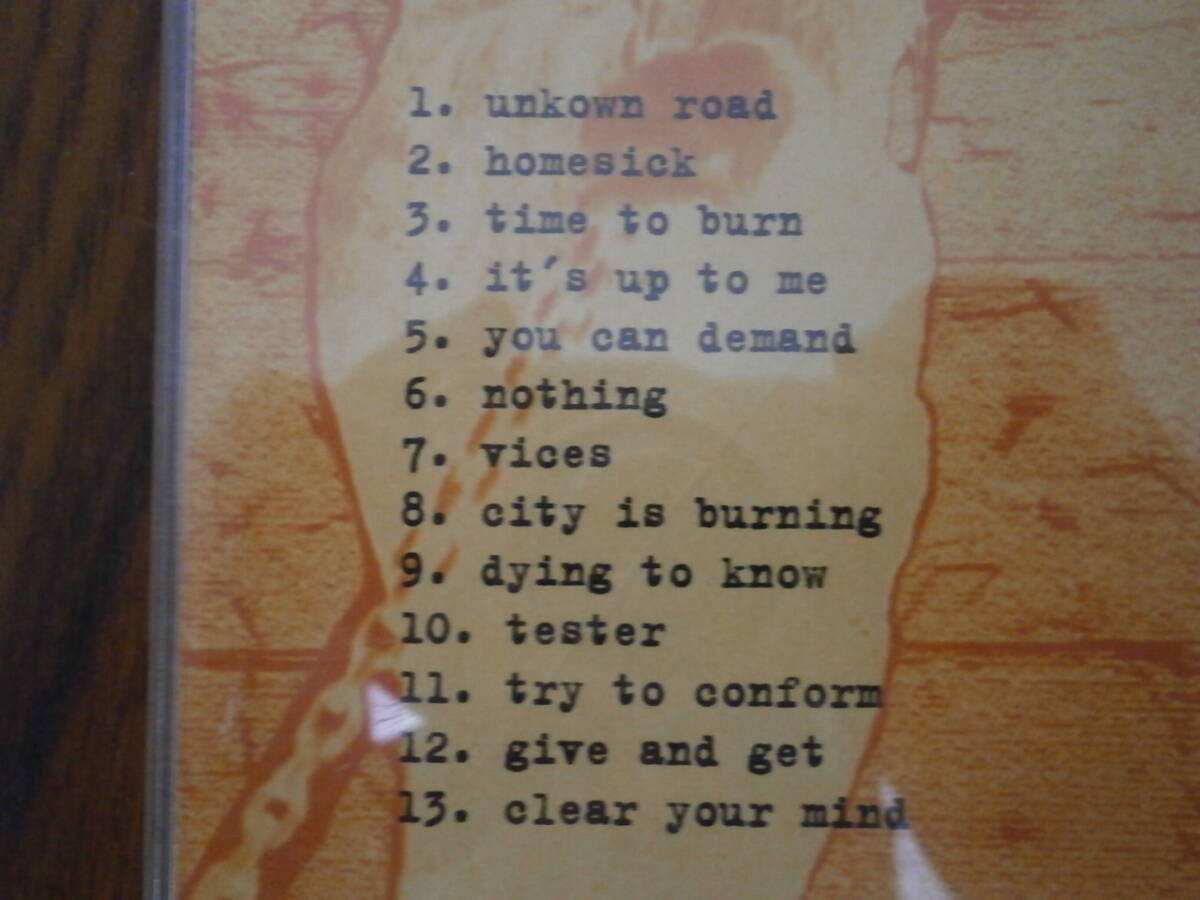 1. unkown road
2. homesick
3. time to burn
4. it's up to me
5. you can demand
6. nothing
7. vices
8. city is burning
9. dying to know
10. tester
11. try to conform
12. give and get
13. clear your mind